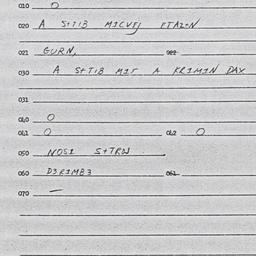 010 O
020 A S+TIB MICUEJ ETAI-N
021 GURN, 022
030 A S+TIB MIT A KRIMIN DAX
031
040 O
041 O 042 O
050 NOSI S+TRW
060 D3RIMB3 061
070 —